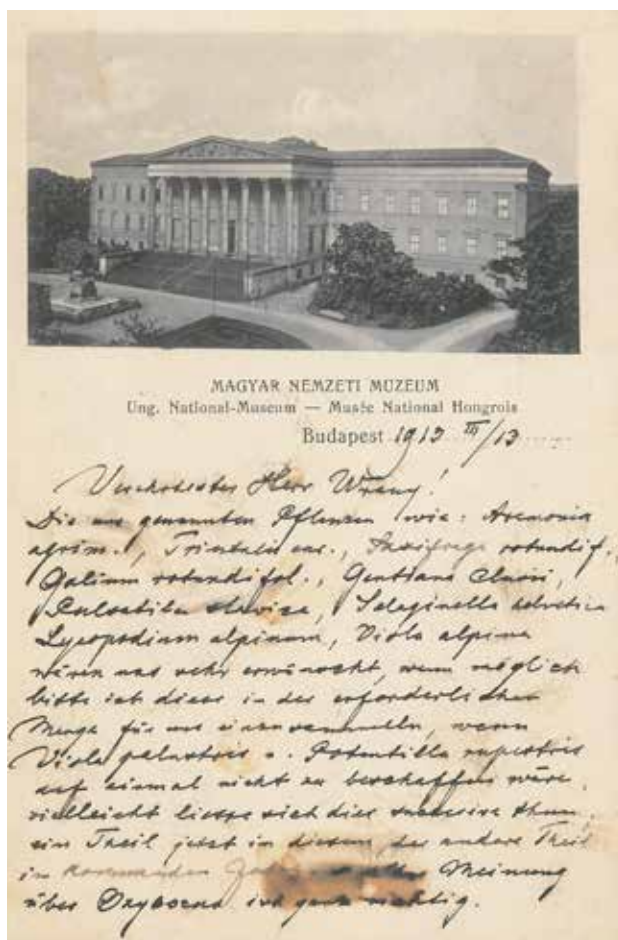 MAGYAR NEMZETI MUZEUM
Ung. National-Museum — Musée National Hongrois
Budapest 1913 III/13
Herr Wrany!
Die uns genannten Pflanzen wie: Aremonia
agrim., Trientalis eur., Saxifraga rotundif.
Galium rotundifol., Gentiana Clusii,
Pulsatilla slavica, Selaginella helvetica
Lycopodium alpinum, Viola alpina
wären uns sehr erwünscht, wenn möglich
bitte ich diese in der erforderlichen
Menge für uns einzusammeln, wenn
Viola palustris u. Potentilla rupestris
auf einmal nicht zu beschaffen wäre,
vielleicht liesse sich dies successive thun,
ein Theil jetzt in diesem, der andere Theil
in kommenden Meinung
über ist ganz richtig.